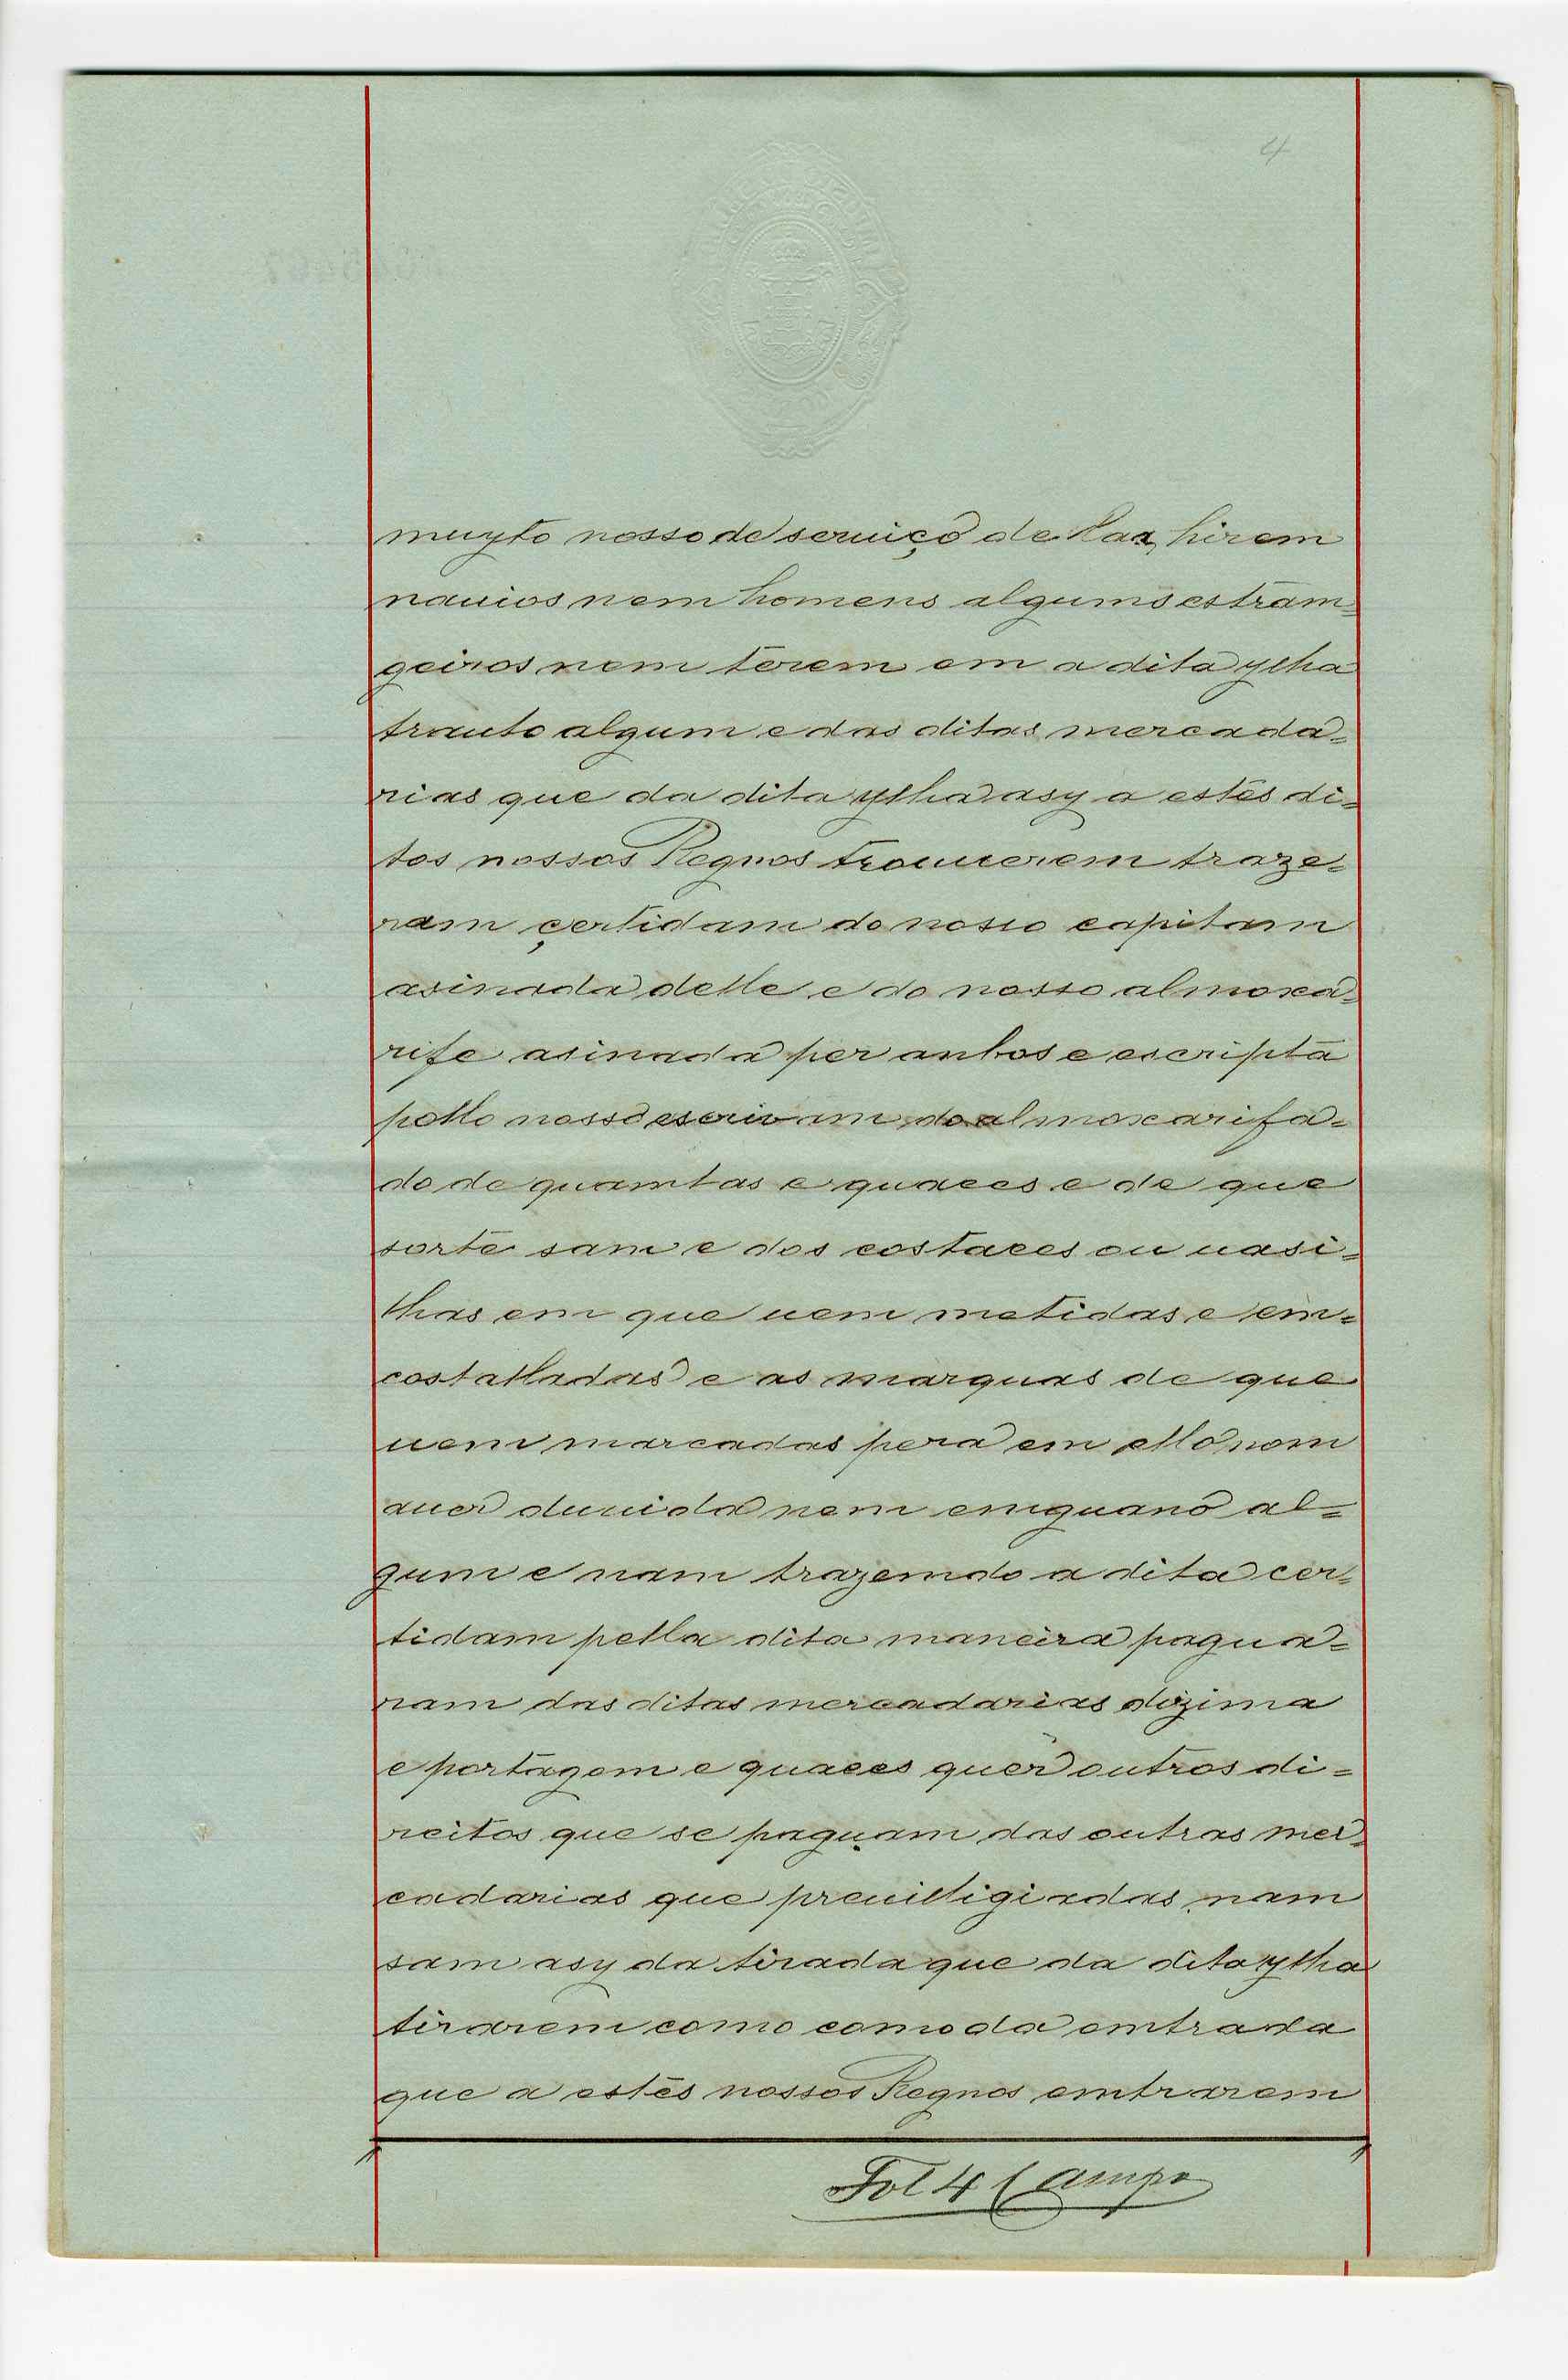 4
muyto nosso deseruiço de llaa hirem
nauios nem homens algums estram=
geiros nem terem em a dita ylha
trauto algum e das ditas mercada=
rias que da dita ylha asy a estes di=
tos nossos Regnos trouuerem traze=
ram çertidam do nosso capitam
asinada delle e do nosso almoxa=
rife asinada per anbos e escripta
pello nosso escrivam do almoxarifa=
do de quamtas e quaees e de que
sorte sam e dos costaees ou uasi=
lhas em que uem metidas e em=
costalladas e as marquas de que
uem marcadas pera em ello nom
auer duuida nem emguano al=
gum e nam trazemdo a dita cer=
tidam pella dita maneira pagua=
ram das ditas mercadarias dizima
e portagem e quaees quer outros di=
reitos que se paguam das outras mer=
cadarias que preuilligiadas nam
sam asy da tirada que da dita ylha
tirarem como como da emtrada
que a estes nossos Regnos emtrarem
Fol 4 Campo